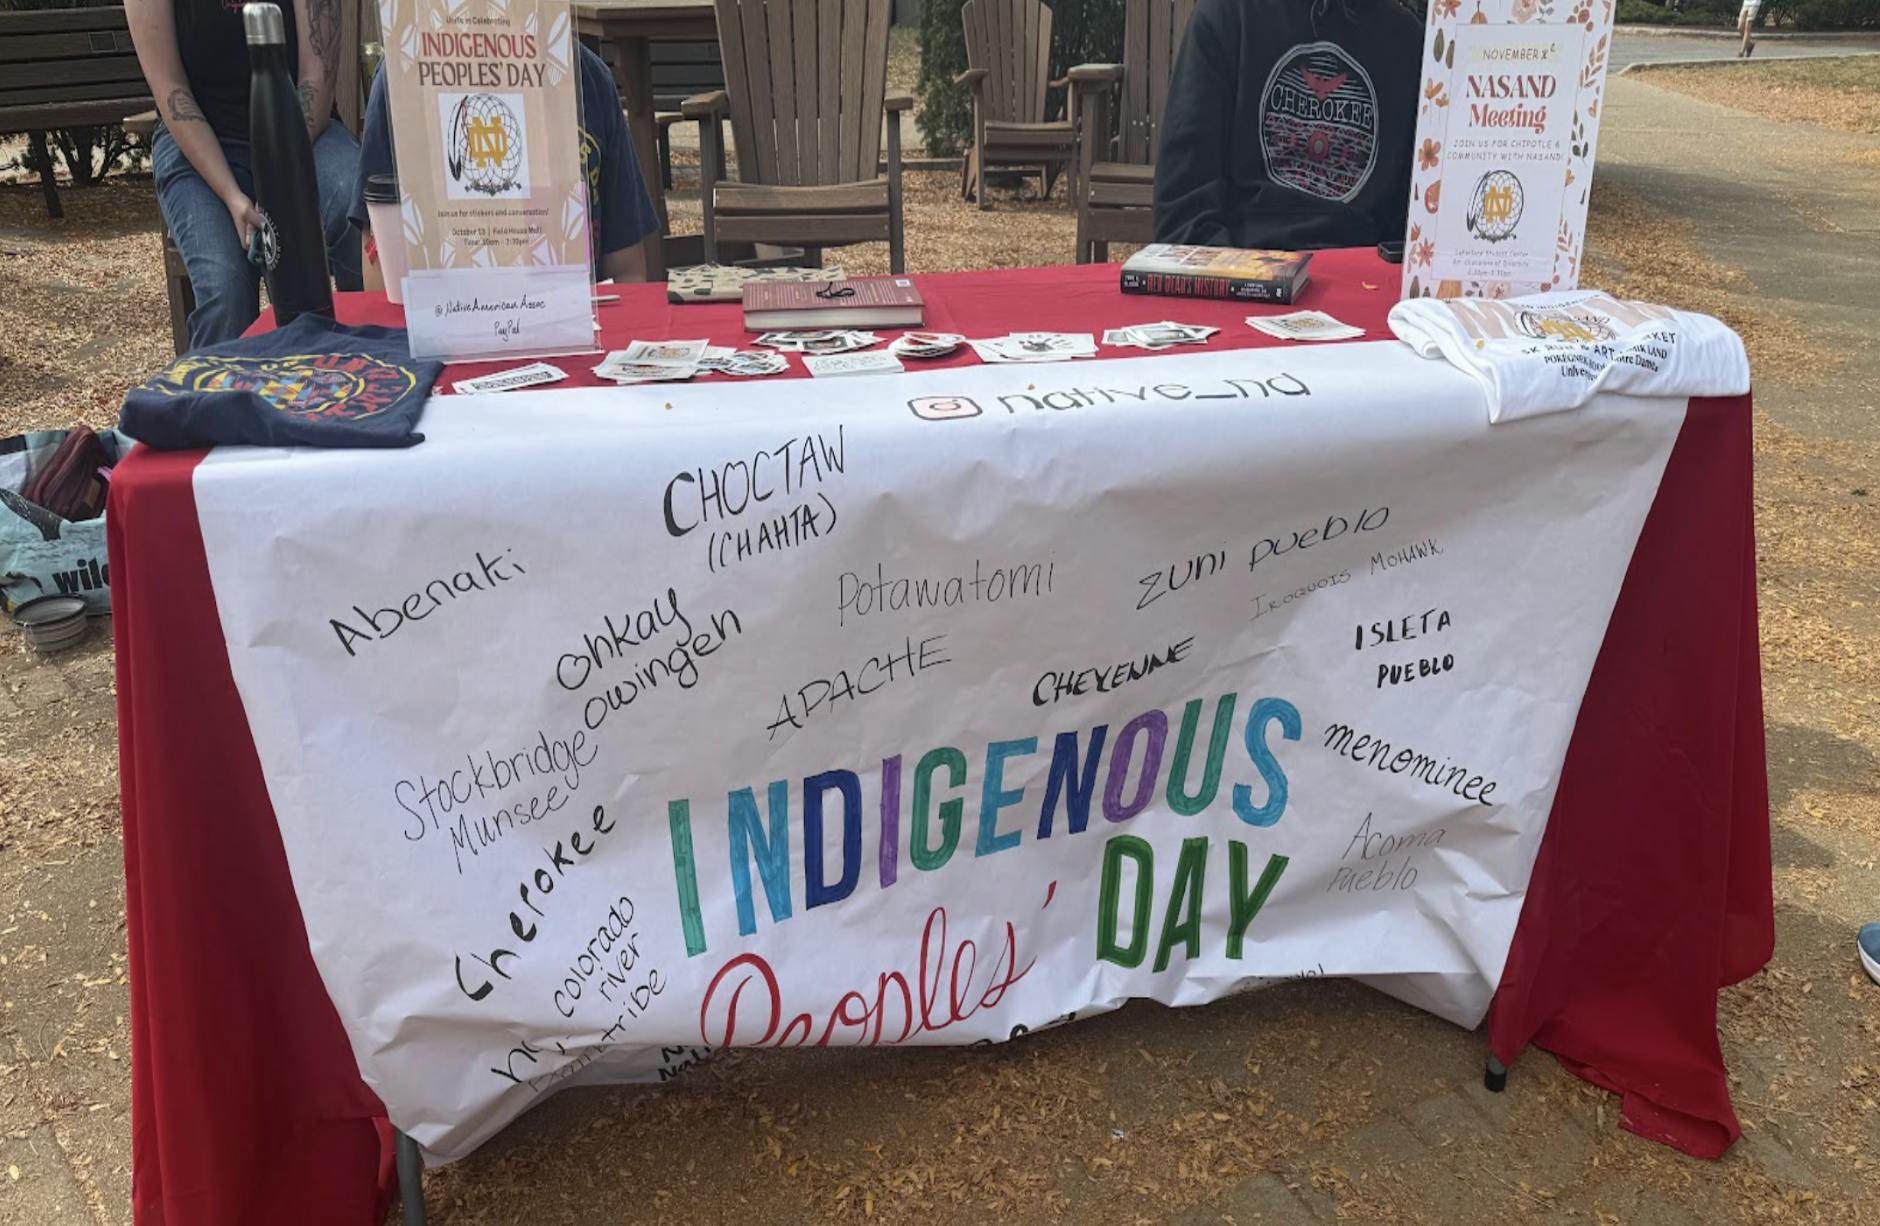 Unite in Celebrating
INDIGENOUS
PEOPLES' DAY
ND
Join us for stickers and conversation!
October 13 | Field House Mall
@NativeAmericanAssoc
PayPal
CHEROKEE
NOVEMBER
NASAND
Meeting
JOIN US FOR CHIPOTLE &
COMMUNITY WITH NASAND!
ND
LaFortune Student Center
RED DEAD'S HISTORY
5K RUN & ART
wild
native_nd
CHOCTAW
(CHAHTA)
Abenaki
Ohkay
owingeh
Potawatomi
Zuni pueblo
IROQUOIS MOHAWK
ISLETA
PUEBLO
APACHE
CHEYENNE
Stockbridge
Munsee
menominee
Cherokee
Acoma
Pueblo
colorado
river
tribe
INDIGENOUS
Peoples' DAY